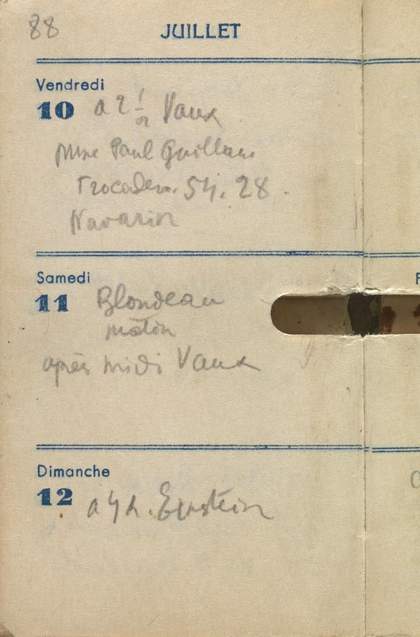 88
JUILLET
Vendredi
10 a 2 1/2 Vaux
Mme Paul Guillaume
Trocadero. 54. 28.
Navarin
Samedi
11 Blondeau
matin
après midi Vaux
Dimanche
12 a 4 h. Epstein